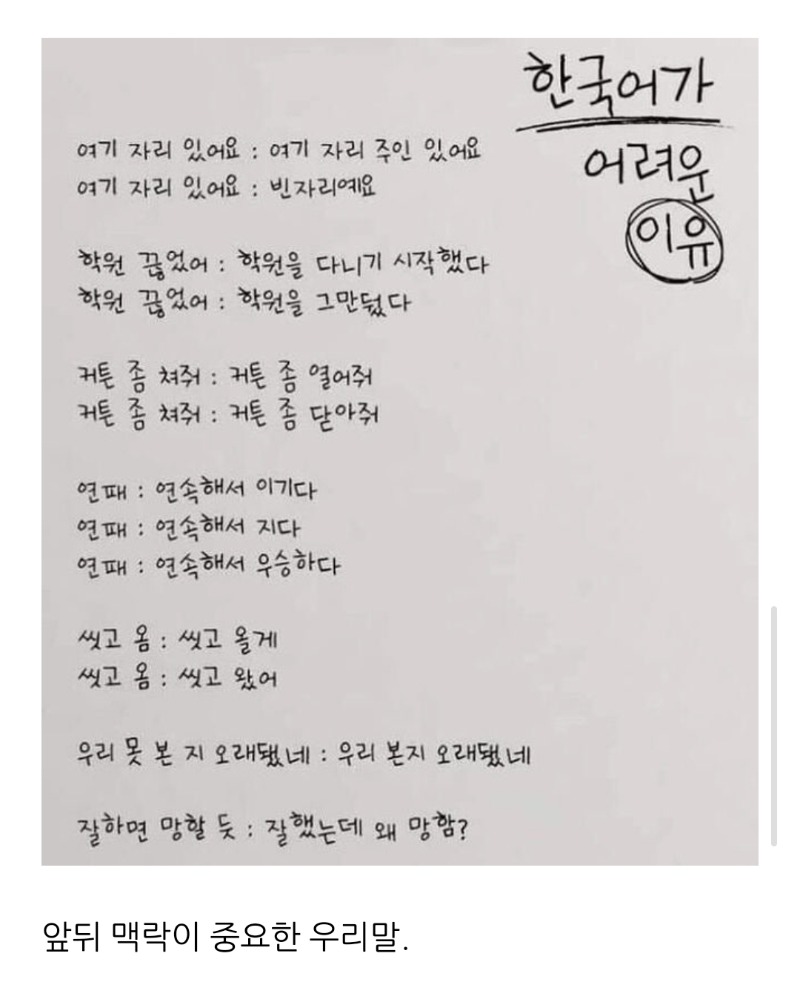 한국어가
어려운
이유
여기 자리 있어요 : 여기 자리 주인 있어요
여기 자리 있어요 : 빈자리예요
학원 끊었어 : 학원을 다니기 시작했다
학원 끊었어 : 학원을 그만뒀다
커튼 좀 쳐줘 : 커튼 좀 열어줘
커튼 좀 쳐줘 : 커튼 좀 닫아줘
연패 : 연속해서 이기다
연패 : 연속해서 지다
연패 : 연속해서 우승하다
씻고 옴 : 씻고 올게
씻고 옴 : 씻고 왔어
우리 못 본 지 오래됐네 : 우리 본지 오래됐네
잘하면 망할 듯 : 잘했는데 왜 망함?
앞뒤 맥락이 중요한 우리말.